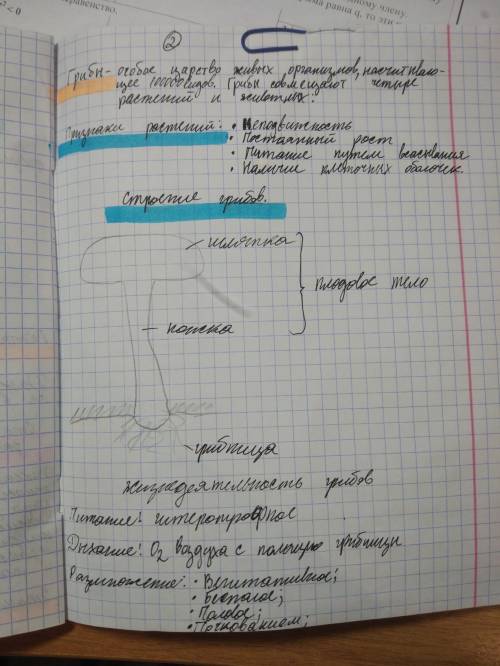 равенство.
ному члену.
рма равна q, то эти
² < 0
2
Грибы - особое царство живых организмов, насчитываю-
щее 100000 видов. Грибы совмещают четыре
растений и животных.
Признаки растений: • Неподвижность
• Постоянный рост
• Питание путем всасывания
• Наличие клеточных оболочек.
Строение грибов.
шляпка
плодовое тело
ножка
грибница
Жизнедеятельность грибов
Питание: гитеротрофное
Дыхание: O₂ воздуха с помощью грибницы
Размножение: • Вегитативное;
• Бесполое;
• Половое;
• Почкованием;